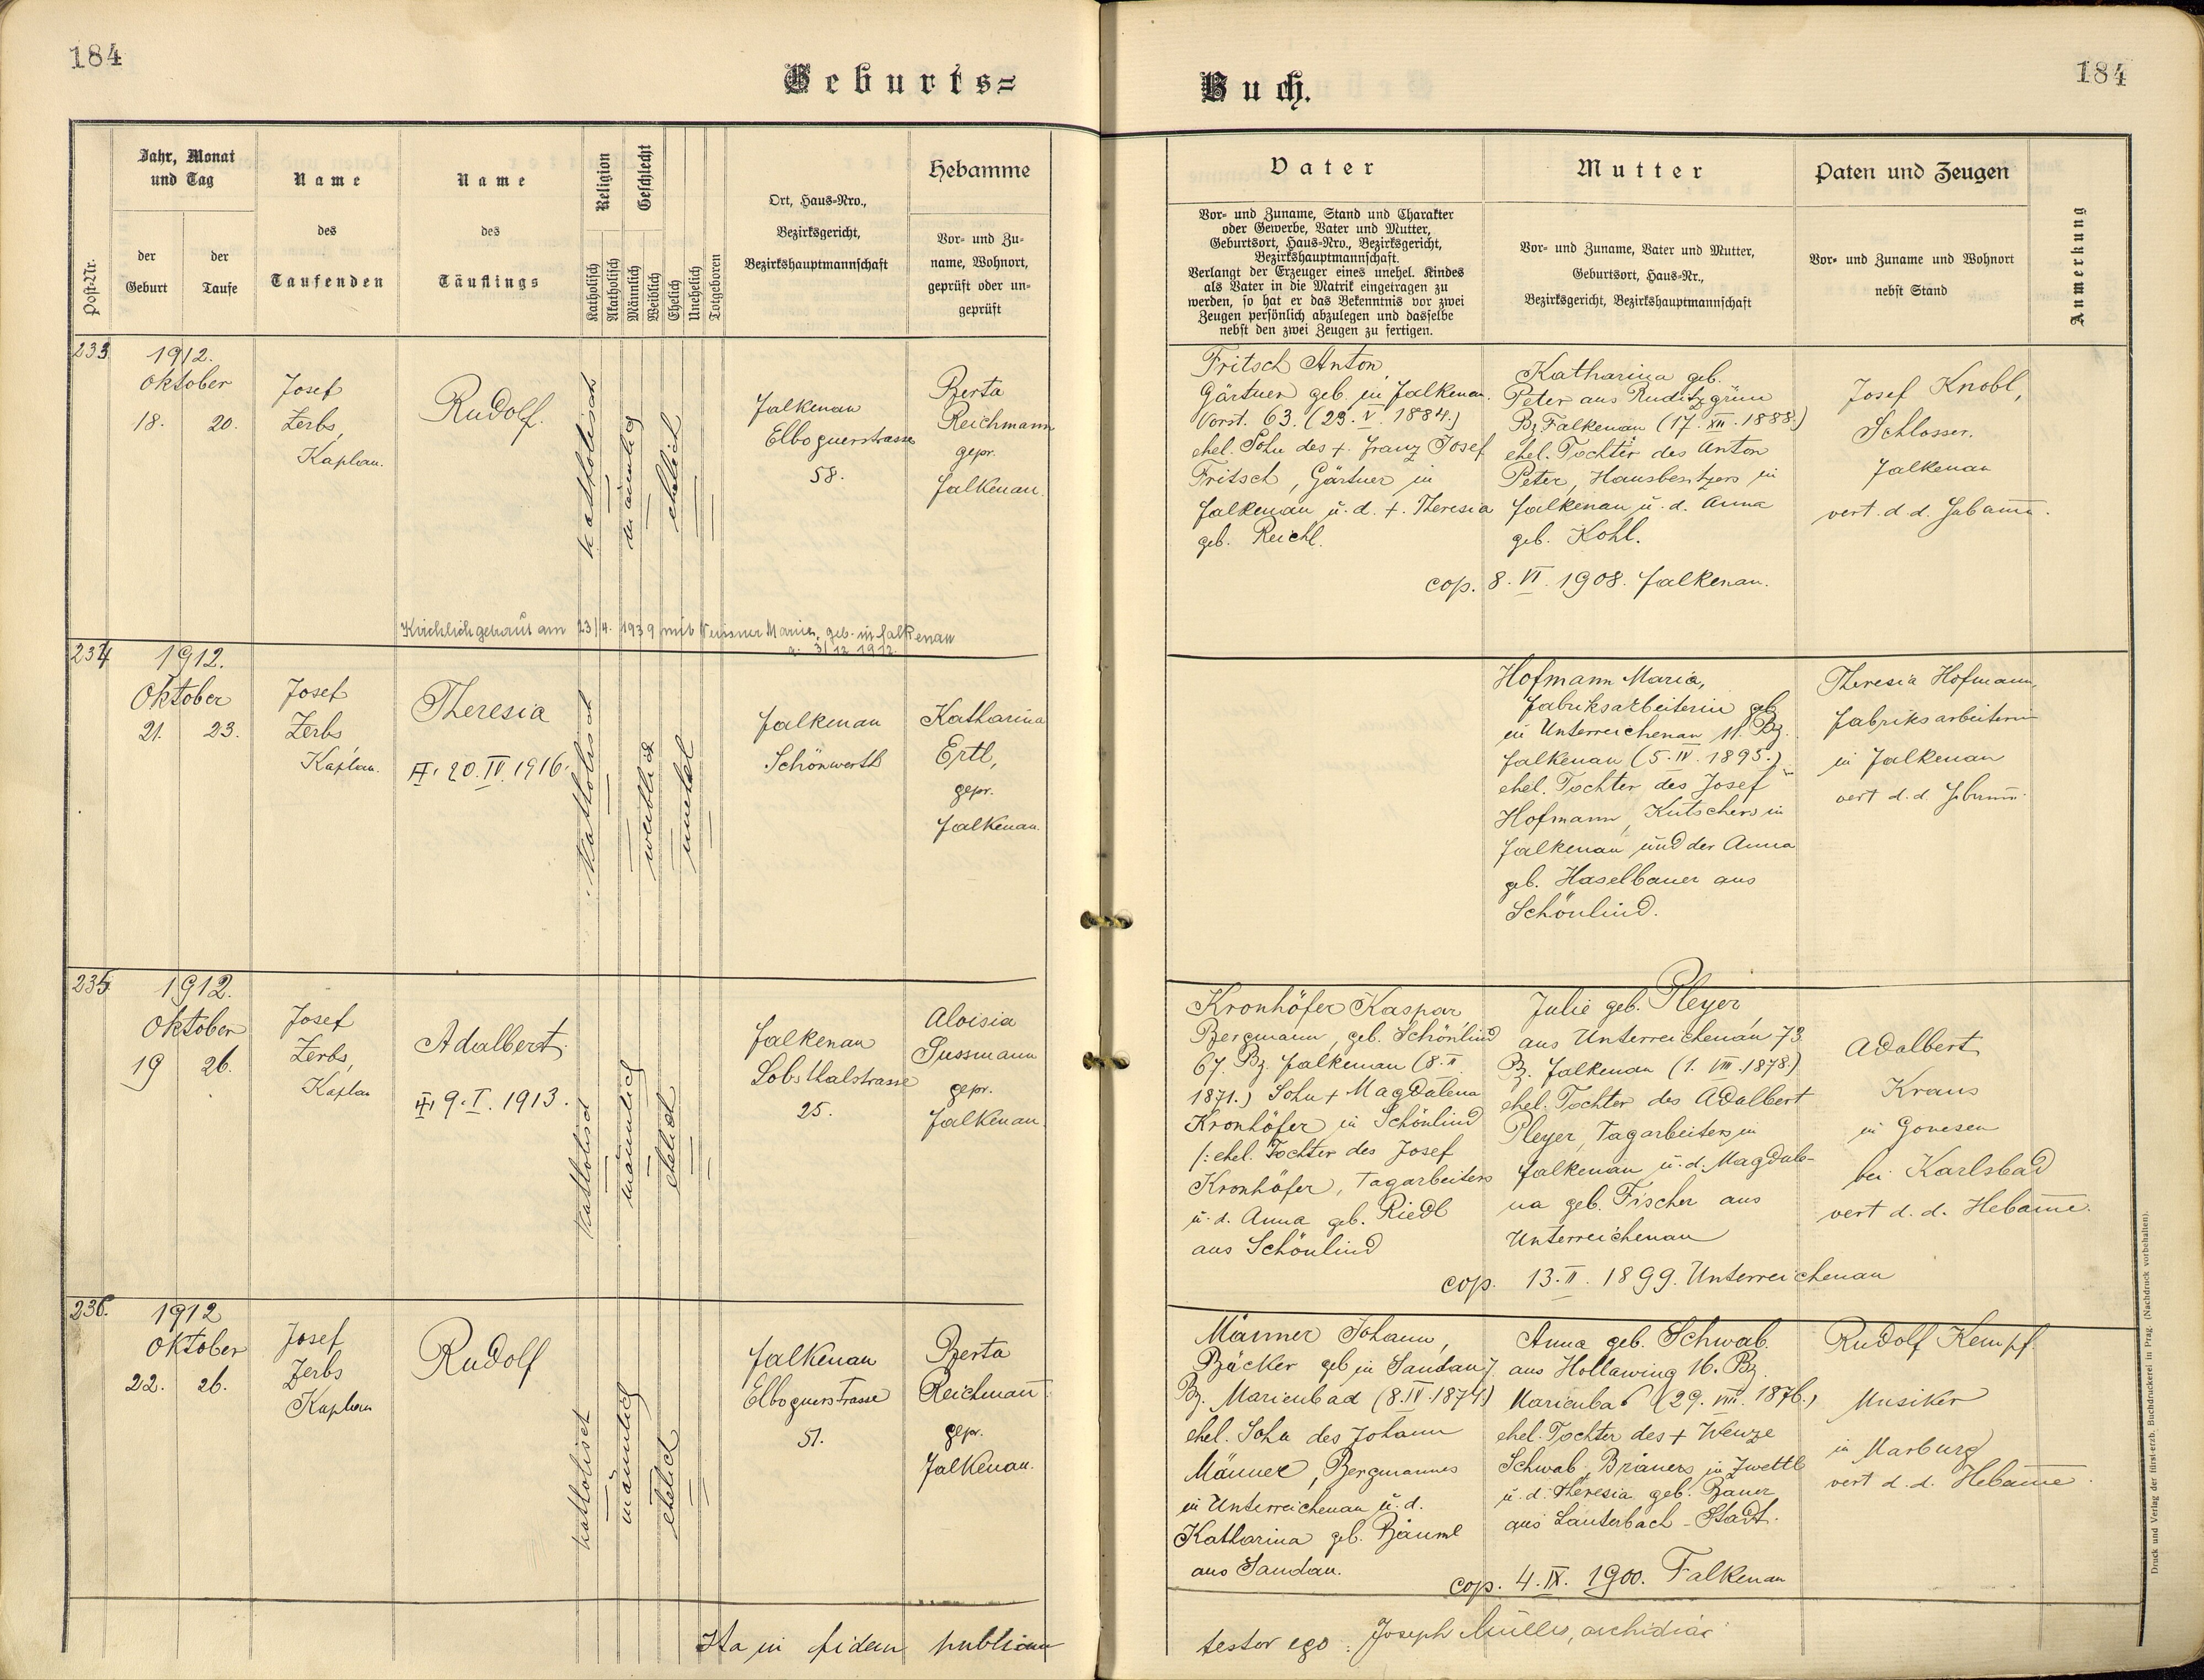 184
Geburts=
Jahr, Monat
und Tag
der
Geburt
der
Taufe
Post-Nr.
Name
des
Taufenden
Name
des
Täuflings
Religion
Katholisch
Akatholisch
Geschlecht
Männlich
Weiblich
Ehelich
Unehelich
Totgeboren
Ort, Haus-Nro.,
Bezirksgericht,
Bezirkshauptmannschaft
Hebamme
Vor- und Zu-
name, Wohnort,
geprüft oder un-
geprüft
233
1912.
Oktober
18. 20.
Josef
Zerbs,
Kaplan.
Rudolf.
katholisch
männlich
ehelich
Falkenau
Elbognerstrasse
58.
Berta
Reichmann
gepr.
Falkenau.
Kirchlich getraut am 23/4. 1939 mit Marie, geb. in Falkenau
a. 3/12 1912.
234
1912.
Oktober
21. 23.
Josef
Zerbs
Kaplan.
Theresia
20. IV. 1916.
katholisch
weiblich
unehel
Falkenau
Schönwerth
Katharina
Ertl,
gepr.
Falkenau.
235
1912.
Oktober
19 26.
Josef
Zerbs,
Kaplan
Adalbert.
9. I. 1913.
katholisch
männlich
ehelich
Falkenau
Lobsthalstrasse
25.
Aloisia
Sussmann
gepr.
Falkenau.
236.
1912
Oktober
22. 26.
Josef
Zerbs
Kaplan
Rudolf
katholisch
männlich
ehelich
Falkenau
Elbognerstrasse
51.
Berta
Reichmann
gepr.
Falkenau.
Ita in fidem publicam
184
Buch.
Vater
Vor- und Zuname, Stand und Charakter
oder Gewerbe, Vater und Mutter,
Geburtsort, Haus-Nro., Bezirksgericht,
Bezirkshauptmannschaft.
Verlangt der Erzeuger eines unehel. Kindes
als Vater in die Matrik eingetragen zu
werden, so hat er das Bekenntnis vor zwei
Zeugen persönlich abzulegen und dasselbe
nebst den zwei Zeugen zu fertigen.
Mutter
Vor- und Zuname, Vater und Mutter,
Geburtsort, Haus-Nr.,
Bezirksgericht, Bezirkshauptmannschaft
Paten und Zeugen
Vor- und Zuname und Wohnort
nebst Stand
Anmerkung
Fritsch Anton,
Gärtner geb. in Falkenau.
Vorst. 63. (23. V. 1884.)
ehel. Sohn des +. Franz Josef
Fritsch, Gärtner in
Falkenau u. d. +. Theresia
geb. Reichl.
Katharina geb.
Peter aus Ruditzgrün
Bz Falkenau (17. XII. 1888.)
ehel. Tochter des Anton
Peter, Hausbesitzers in
Falkenau u. d. Anna
geb. Kohl.
cop. 8. VI. 1908. Falkenau.
Josef Knobl,
Schlosser.
Falkenau
vert. d. d.
Hofmann Maria,
Fabriksarbeiterin geb.
in Unterreichenau 11. Bz.
Falkenau (5. IV. 1895.)
ehel. Tochter des Josef
Hofmann, Kutschers in
Falkenau und der Anna
geb. Haselbauer aus
Schönlind.
Theresia Hofmann,
Fabriksarbeiterin
in Falkenau
vert d. d.
Kronhöfer Kaspar
Bergmann, geb. Schönlind
67. Bz. Falkenau (8. II.
1871.) Sohn + Magdalena
Kronhöfer in Schönlind
/: ehel. Tochter des Josef
Kronhöfer, Tagarbeiters
u. d. Anna geb. Riedl
aus Schönlind
Julie geb. Pleyer,
aus Unterreichenau 73
Bz. Falkenau (1. VIII. 1878.)
ehel. Tochter des Adalbert
Pleyer, Tagarbeiters in
Falkenau u. d. Magdale-
na geb. Fischer aus
Unterreichenau
cop. 13. II. 1899. Unterreichenau
Adalbert
Kraus
in Gonesen
bei Karlsbad
vert d. d. Hebame.
Männer Johann,
Bäcker geb in Sandau 7
Bz. Marienbad (8. IV. 1874.)
ehel. Sohn des Johann
Männer, Bergmannes
in Unterreichenau u. d.
Katharina geb. Bäuml
aus Sandau.
Anna geb. Schwab.
aus Hollawing 16. Bz.
Marienbad (29. VIII. 1876.)
ehel. Tochter des + Wenze
Schwab, Bräuers in Zwettl
u. d. Theresia geb. Bauer
aus Lauterbach - Stadt.
cop. 4. IX. 1900. Falkenau
Rudolf Kempf.
Musiker
in Marburg
vert d. d. Hebame.
testor ego: Joseph Müller, archidiac
Druck und Verlag der fürst-erzb. Buchdruckerei in Prag. (Nachdruck vorbehalten).